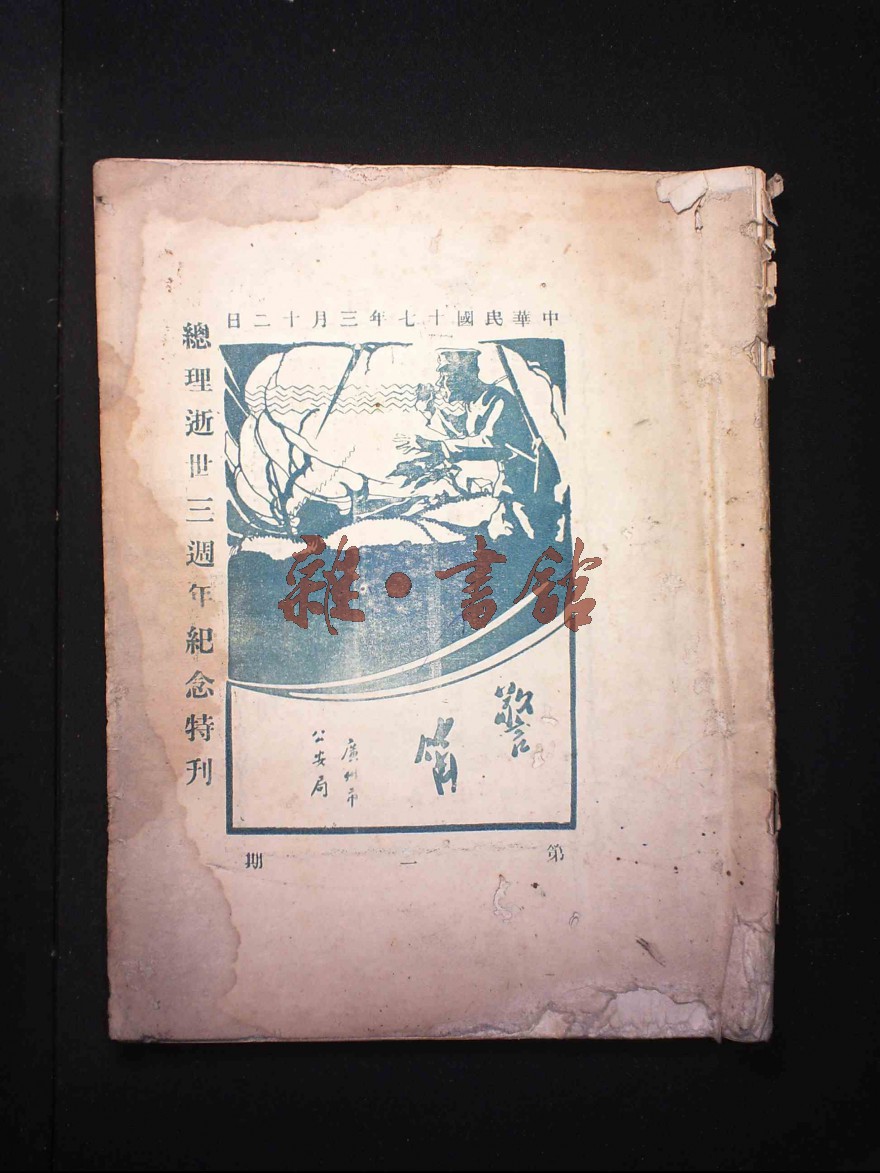 中華民國十七年三月十二日
警笛
廣州市
公安局
總理逝世三週年紀念特刊
第一期
雜·書館